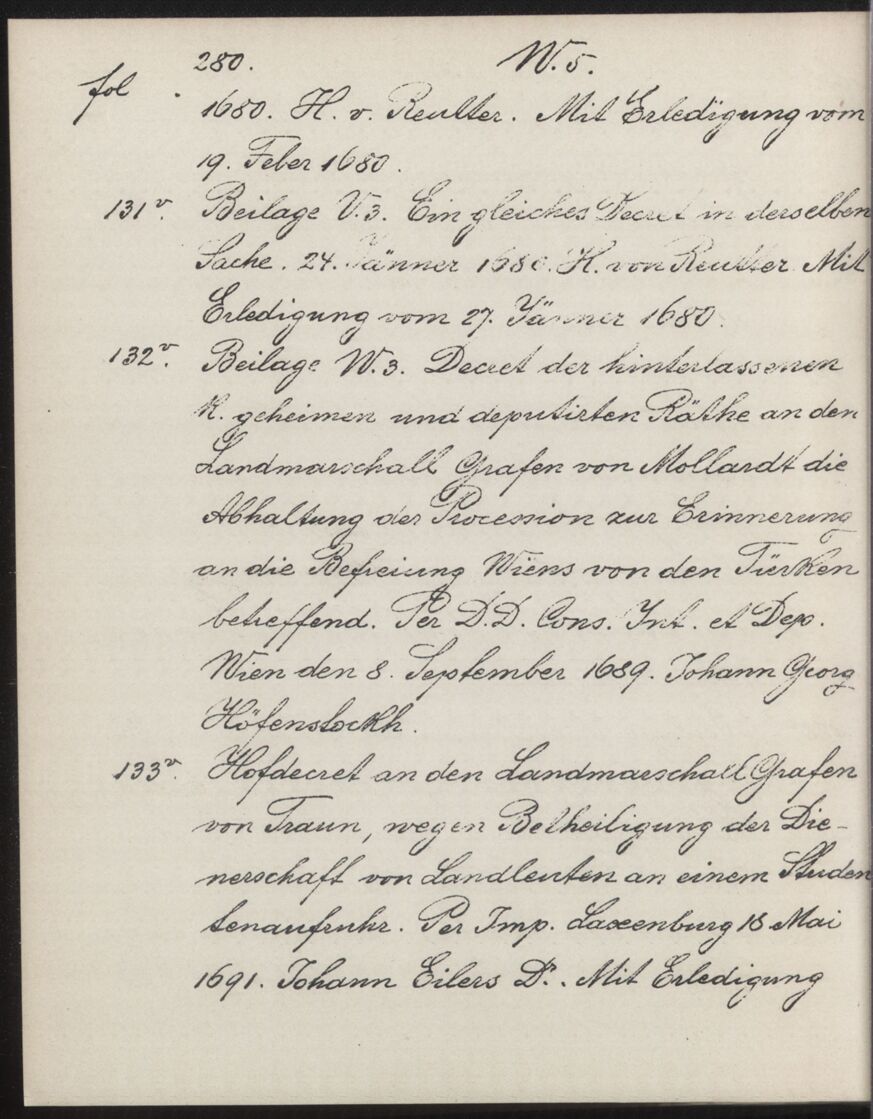 280. W. 5.
fol
1680. H. v. Reutter. Mit Erledigung vom
19. Feber 1680.
131v. Beilage V. 3. Ein gleiches Decret in derselben
Sache. 24. Jänner 1680. H. von Reutter Mit
Erledigung vom 27. Jänner 1680.
132v. Beilage W. 3. Decret der hinterlassenen
k. geheimen und deputirten Räthe an den
Landmarschall Grafen von Mollardt die
Abhaltung der Procession zur Erinnerung
an die Befreiung Wiens von den Türken
betreffend. Per D.D. Cons. Int. et Dep.
Wien den 8. September 1689. Johann Georg
Höfenstockh.
133v. Hofdecret an den Landmarschall Grafen
von Traun, wegen Betheiligung der Die-
nerschaft von Landleuten an einem Studen
tenaufruhr. Per Imp. Laxenburg 18 Mai
1691. Johann Eilers Dr. Mit Erledigung